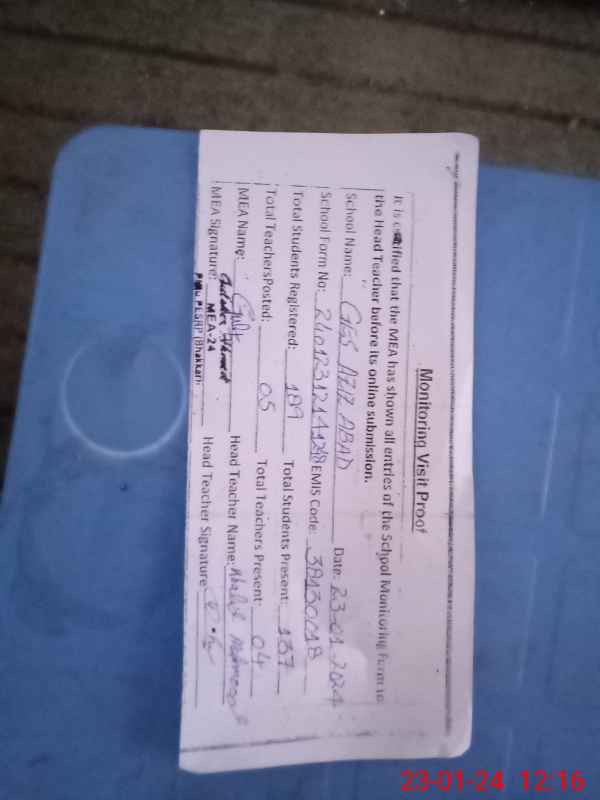 Monitoring Visit Proof
It is certified that the MEA has shown all entries of the School Monitoring Form to
the Head Teacher before its online submission.
School Name: GGS AZIZ ABAD Date: 23-01-2024
School Form No: EMIS Code: 38130018
Total Students Registered: 189 Total Students Present: 137
Total TeachersPosted: 05 Total Teachers Present: 04
MEA Name: Head Teacher Name: Khalid Mehmood
MEA Signature: Head Teacher Signature
MEA-24
PMU PESRP (Bhakkar)
23-01-24 12:16